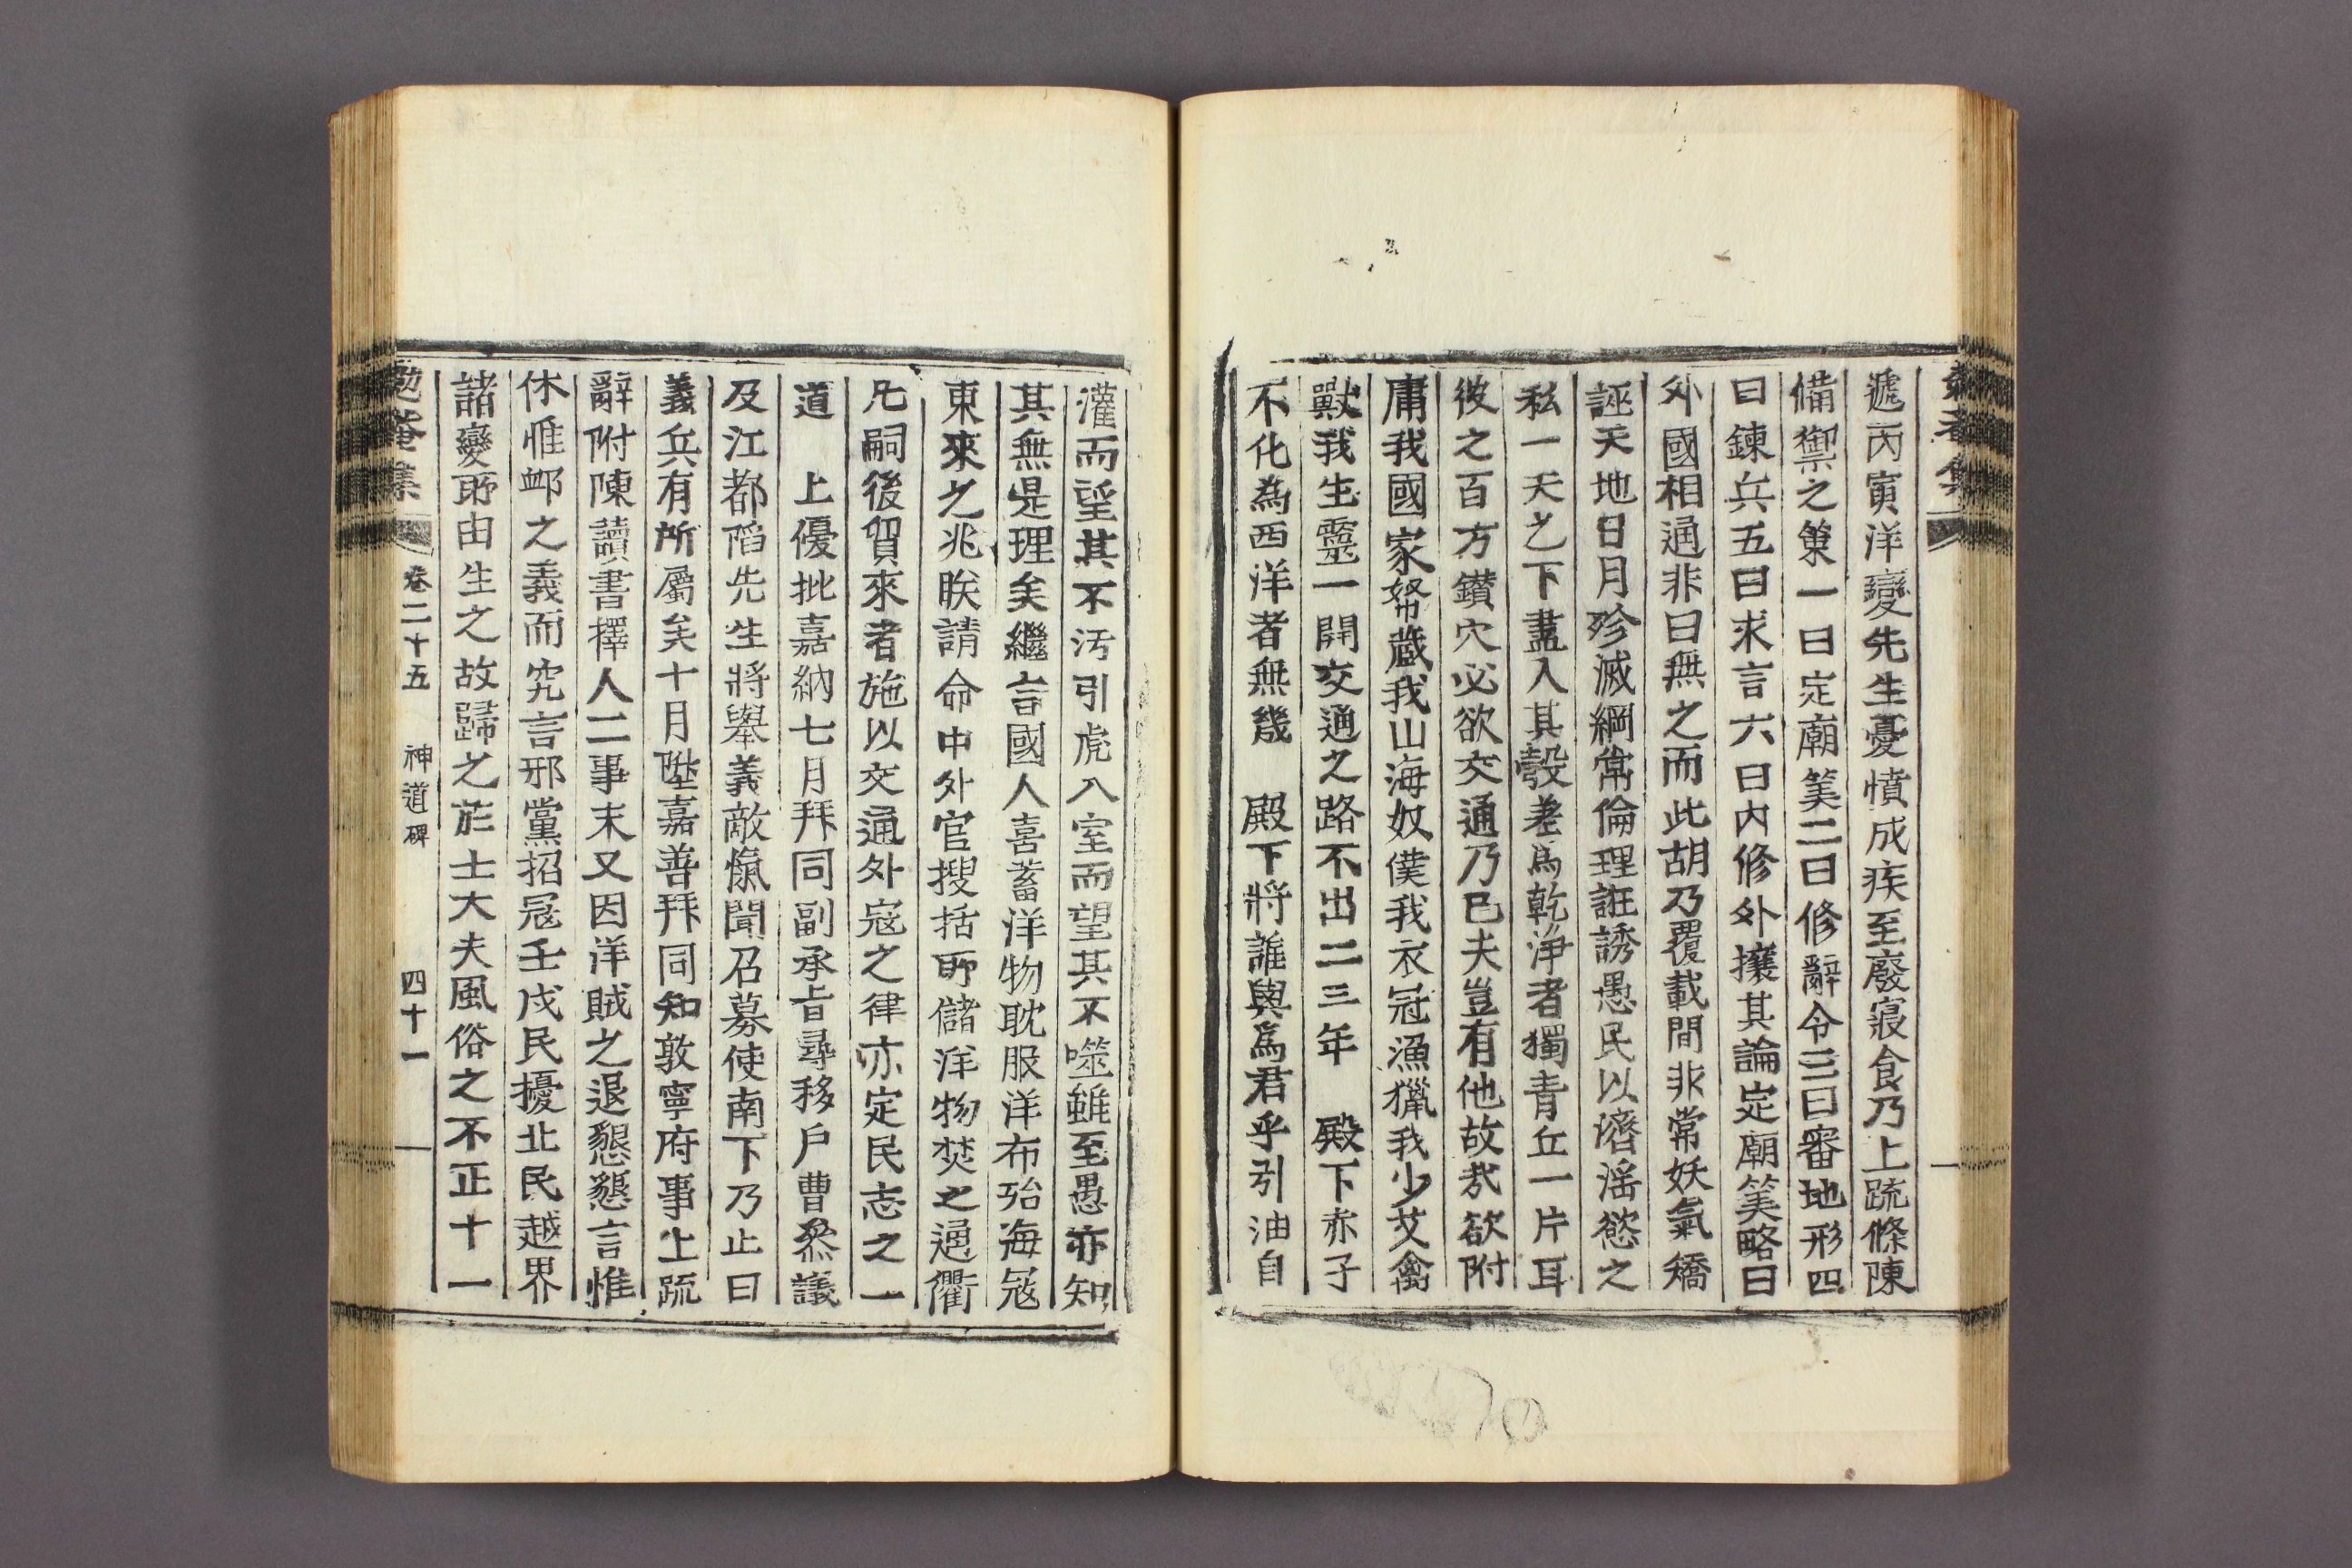 遞丙寅洋變先生憂憤成疾至廢寢食乃上疏條陳
備禦之策一曰定廟筭二曰修辭令三曰審地形四
曰鍊兵五曰求言六曰內修外攘其論定廟筭略曰
外國相通非曰無之而此胡乃覆載間非常妖氣矯
誣天地日月殄滅綱常倫理誑誘愚民以濟滛慾之
私一天之下盡入其彀差爲乾淨者獨青丘一片耳
彼之百方鑚穴必欲交通乃已夫豈有他故㢤欲附
庸我國家帑藏我山海奴僕我衣冠漁獵我少艾禽
獸我生靈一開交通之路不出二三年　殿下赤子
不化為西洋者無幾　殿下將誰與爲君乎引油自
灌而望其不汚引虎入室而望其不噬雖至愚亦知
其無是理矣繼言國人喜蓄洋物耽服洋布殆海冦
東來之兆朕請命中外官搜括所儲洋物焚之通衢
凡嗣後貿來者施以交通外寇之律亦定民志之一
道　上優批嘉納七月拜同副承旨尋移戶曹叅議
及江都陷先生將舉義敵愾聞召募使南下乃止曰
義兵有所屬矣十月陞嘉善拜同知敦寧府事上疏
辭附陳讀書擇人二事末又因洋賊之退懇懇言惟
休惟䘏之義而究言邪黨招冦壬戌民擾北民越界
諸變所由生之故歸之於士大夫風俗之不正十一
勉菴集　卷二十五　神道碑　四十一